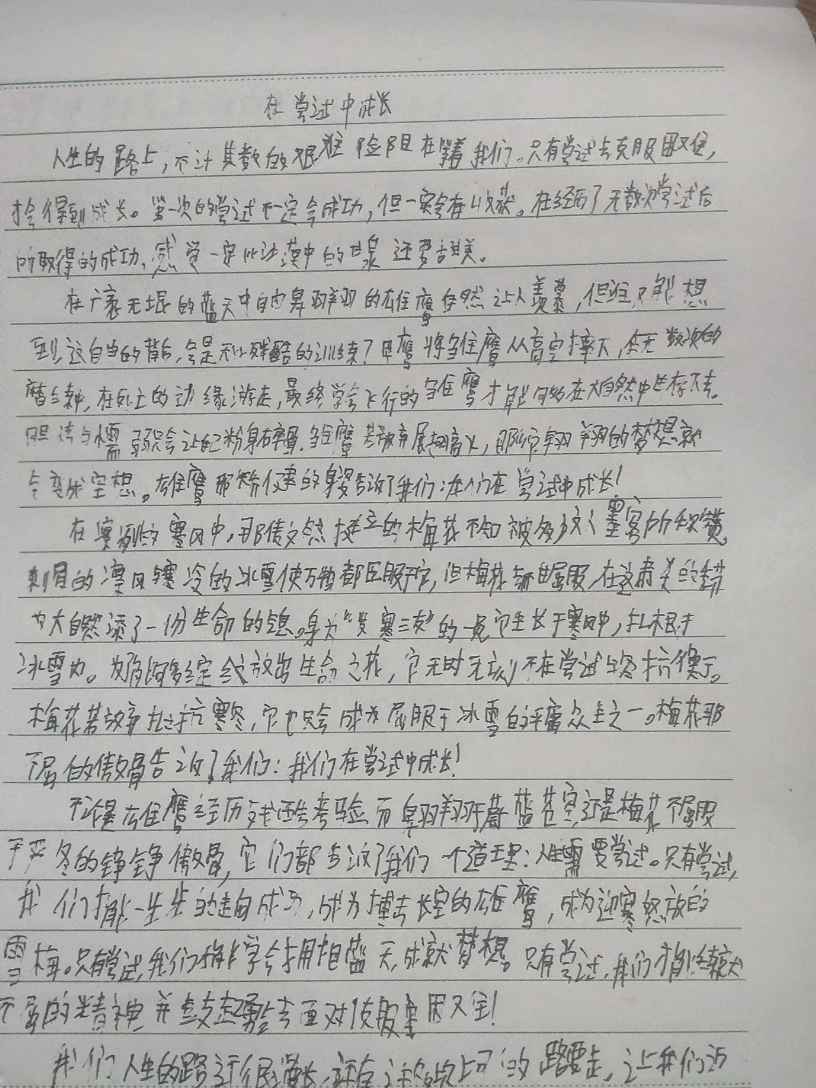 在尝试中成长
人生的路上，不计其数的艰难险阻在等着我们。只有尝试去克服困难，
才会得到成长。每一次的尝试不一定会成功，但一定会有收获。在经历了无数次尝试后
所取得的成功，感觉一定比沙漠中的甘泉还要甜美。
在广袤无垠的蓝天中自由翱翔的雄鹰固然让人羡慕，但谁又能想
到，这自由的背后，会是无比残酷的训练？母鹰将雏鹰从高空摔下，在无数次的
磨练中，在死亡的边缘游走，最终学会飞行的雏鹰才能够在大自然中生存下去。
胆怯与懦弱只会让自己粉身碎骨，雏鹰若放弃展翅高飞，那所谓翱翔的梦想就
会变成空想。雄鹰那矫健的身姿告诉了我们：我们在尝试中成长！
在凛冽的寒风中，那傲然挺立的梅花不知被多少文人墨客所称赞。
刺骨的凛风与寒冷的冰雪使万物都臣服于它，但梅花不屈服，在这肃杀的
为大自然添了一份生命的气息。身为“岁寒三友”的一员，它生长于寒冬中，扎根于
冰雪内。为了绽放出生命之花，它无时无刻不在尝试与寒冬抗衡。
梅花若放弃抵抗寒冬，它也只会成为屈服于冰雪的平庸众生之一。梅花那
不屈的傲骨告诉了我们：我们在尝试中成长！
不仅是雄鹰经历残酷考验而翱翔于蔚蓝苍穹，还是梅花不屈服
于严冬的铮铮傲骨，它们都告诉了我们一个道理：人生需要尝试。只有尝试，
我们才能一步步的走向成功，成为搏击长空的雄鹰，成为迎寒怒放的
雪梅。只有尝试，我们才能学会拥抱蓝天，成就梦想。只有尝试，我们才能
不屈的精神并鼓起勇气去面对这般困难！
我们人生的路还很漫长，还有的路要走，让我们迈